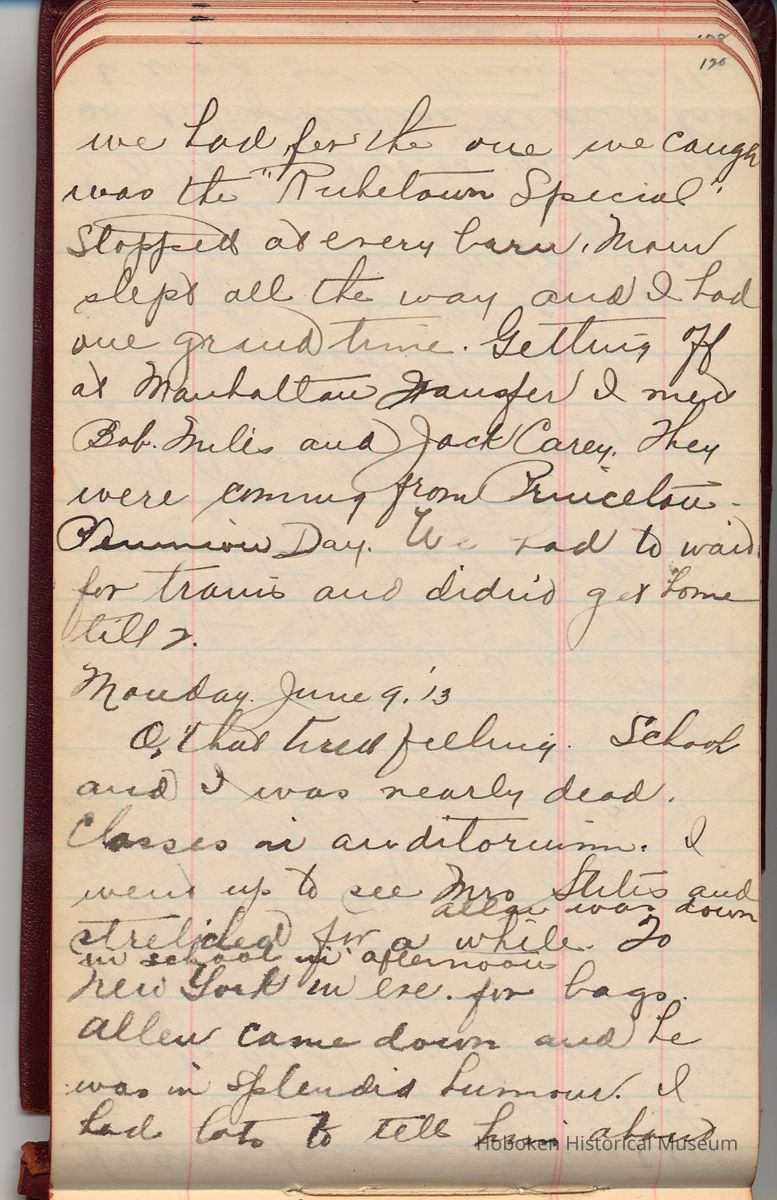 120
we had for the one we caugh
was the "Rubetown Special".
Stopped at every barn. Mow
slept all the way and I had
one grand time. Getting off
at Manhattan Transfer I met
Bob. Miles and Jack Carey. They
were coming from Princeton -
Reunion Day. We had to wait
for trains and didn't get home
till 2.
Monday. June 9, '13
O, that tired feeling. School
and I was nearly dead.
Classes in auditorium. I
went up to see Mrs Stiles and
allen was down
stretched for a while. To
in school in afternoon
New York in eve. for bags.
Allen came down and he
was in splendid humour. I
had lots to tell him about
Hoboken Historical Museum